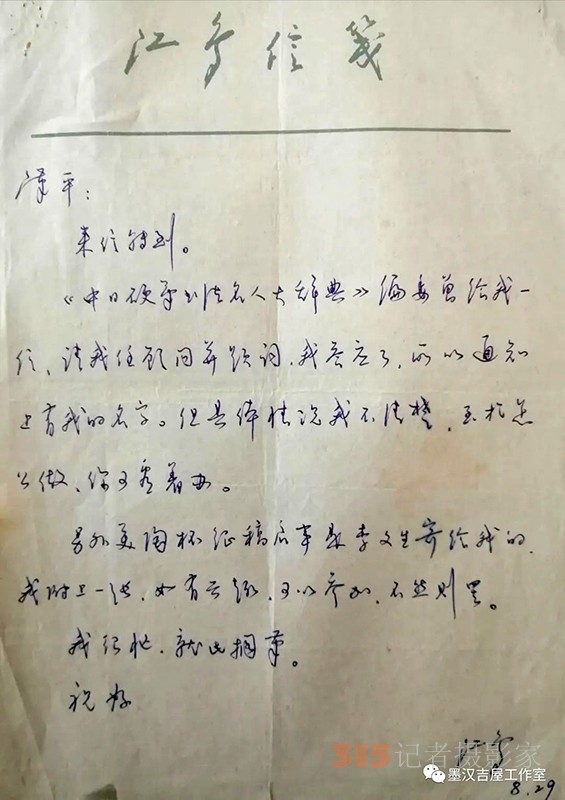 江鸟信笺
汉平：
来信转到。
《中日硬笔书法名人大辞典》编委曾给我一
信、请我任顾问并题词，我答应了，所以通知
上有我的名字。但具体情况我不清楚，至于怎
么做、你可看着办。
另外美陶杯征稿启事是李文生寄给我的，
我附上一张，如有兴趣，可以参加，不然则罢。
我很忙，就此搁笔。
祝好
江鸟
8.29
315记者摄影家
墨汉吉屋工作室